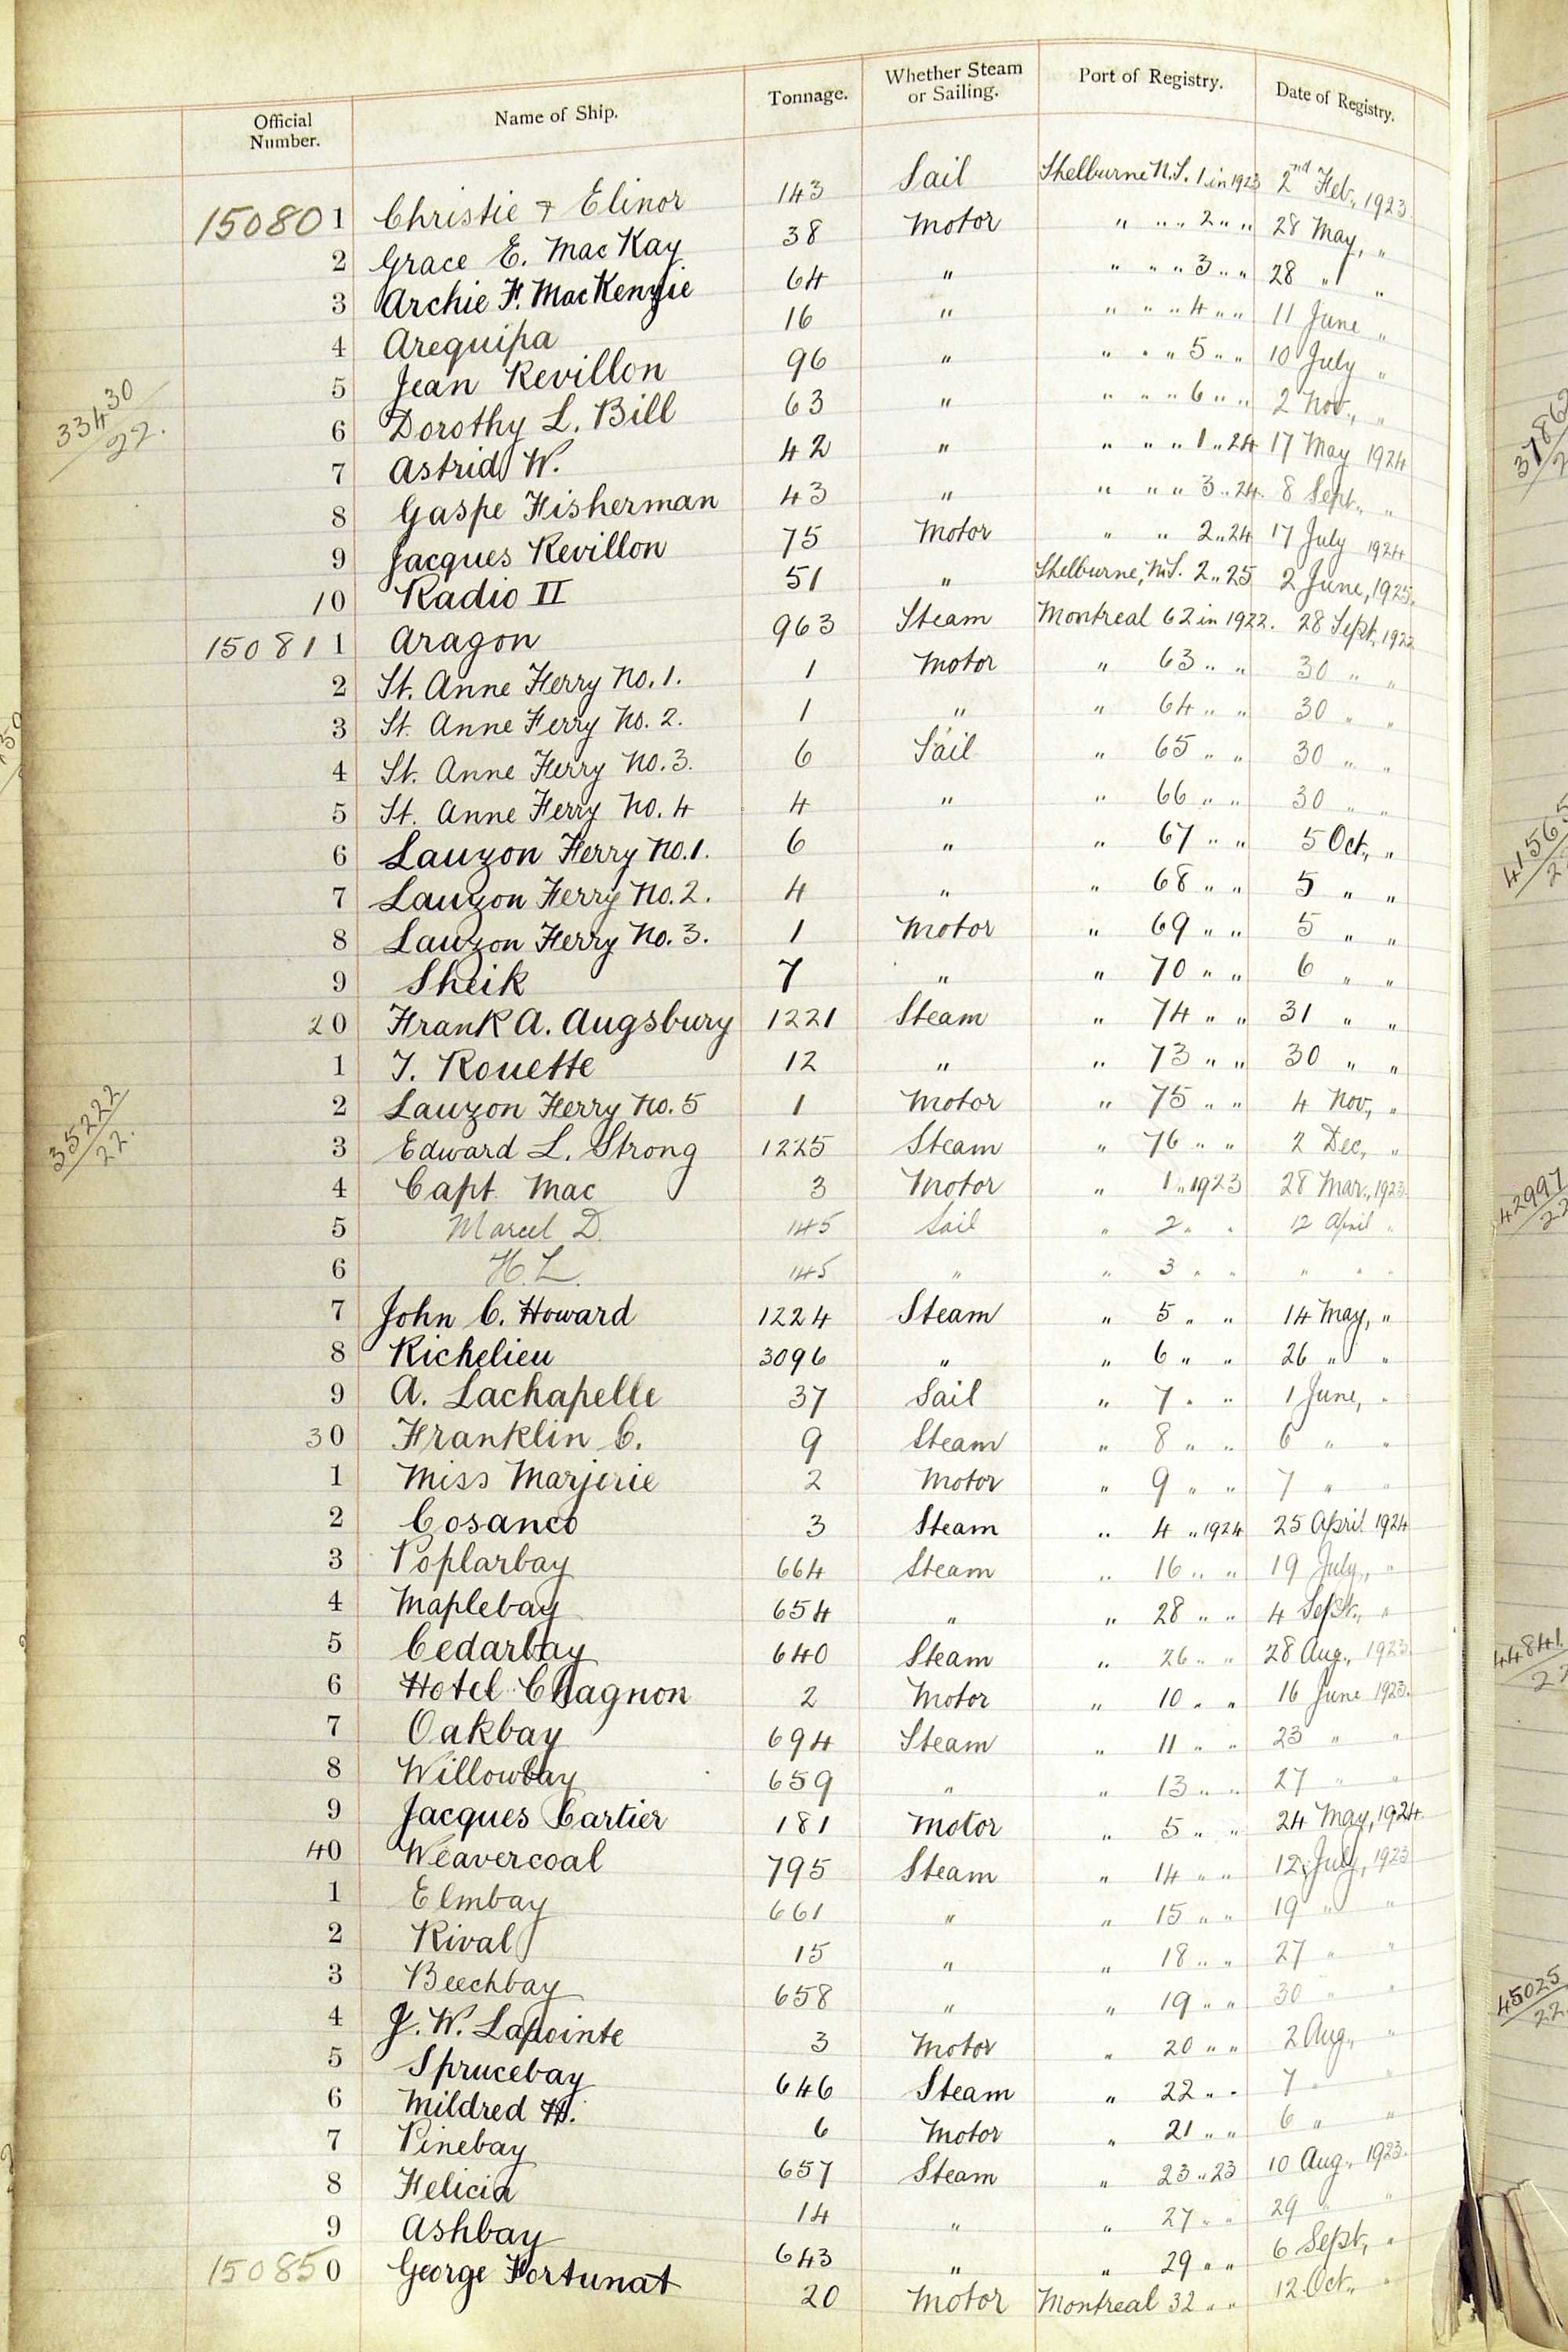 Official Number. Name of Ship. Tonnage. Whether Steam or Sailing. Port of Registry. Date of Registry.
150801 Christie & Elinor 143 Sail Shelburne N.S. 1 in 1923 2nd Feb., 1923.
2 Grace E. MacKay 38 Motor " " " 2 " " 28 May, "
3 Archie F. MacKenzie 64 " " " " 3 " " 28 " "
4 Arequipa 16 " " " " 4 " " 11 June "
5 Jean Revillon 96 " " " " 5 " " 10 July "
6 Dorothy L. Bill 63 " " " " 6 " " 2 Nov., "
7 Astrid W. 42 " " " " 1 " 24 17 May 1924
8 Gaspe Fisherman 43 " " " " 3 " 24. 8 Sept., "
9 Jacques Revillon 75 Motor " " 2 " 24 17 July 1924
10 Radio II 51 " Shelburne, N.S. 2 " 25 2 June, 1925.
150811 Aragon 963 Steam Montreal 62 in 1922. 28 Sept, 1922
2 St. Anne Ferry No. 1. 1 Motor " 63 " " 30 " "
3 St. Anne Ferry No. 2. 1 " " 64 " " 30 " "
4 St. Anne Ferry No. 3. 6 Sail " 65 " " 30 " "
5 St. Anne Ferry No. 4 4 " " 66 " " 30 " "
6 Lauzon Ferry No. 1. 6 " " 67 " " 5 Oct., "
7 Lauzon Ferry No. 2. 4 " " 68 " " 5 " "
8 Lauzon Ferry No. 3. 1 Motor " 69 " " 5 " "
9 Sheik 7 " " 70 " " 6 " "
20 Frank A. Augsbury 1221 Steam " 74 " " 31 " "
1 T. Rouette 12 " " 73 " " 30 " "
2 Lauzon Ferry No. 5 1 Motor " 75 " " 4 Nov., "
3 Edward L. Strong 1225 Steam " 76 " " 2 Dec, "
4 Capt. Mac 3 Motor " 1 " 1923 28 Mar., 1923.
5 Marcel D. 145 Sail " 2 " " 12 April "
6 H. L. 145 " " 3 " " " " "
7 John C. Howard 1224 Steam " 5 " " 14 May, "
8 Richelieu 3096 " " 6 " " 26 " "
9 A. Lachapelle 37 Sail " 7 " " 1 June, "
30 Franklin C. 9 Steam " 8 " " 6 " "
1 Miss Marjorie 2 Motor " 9 " " 7 " "
2 Cosanco 3 Steam " 4 " 1924 25 April 1924
3 Poplarbay 664 Steam " 16 " " 19 July, "
4 Maplebay 654 " " 28 " " 4 Sept., "
5 Cedarbay 640 Steam " 26 " " 28 Aug., 1923.
6 Hotel Chagnon 2 Motor " 10 " " 16 June 1923.
7 Oakbay 694 Steam " 11 " " 23 " "
8 Willowbay 659 " " 13 " " 27 " "
9 Jacques Cartier 181 Motor " 5 " " 24 May, 1924.
40 Weavercoal 795 Steam " 14 " " 12 July, 1923
1 Elmbay 661 " " 15 " " 19 " "
2 Rival 15 " " 18 " " 27 " "
3 Beechbay 658 " " 19 " " 30 " "
4 J. W. Lapointe 3 Motor " 20 " " 2 Aug., "
5 Sprucebay 646 Steam " 22 " " 7 " "
6 Mildred H. 6 Motor " 21 " " 6 " "
7 Pinebay 657 Steam " 23 " 23 10 Aug., 1923.
8 Felicia 14 " " 27 " " 29 " "
9 Ashbay 643 " " 29 " " 6 Sept, "
150850 George Fortunat 20 Motor Montreal 32 " " 12 Oct., "
33430/22.
35222/22.